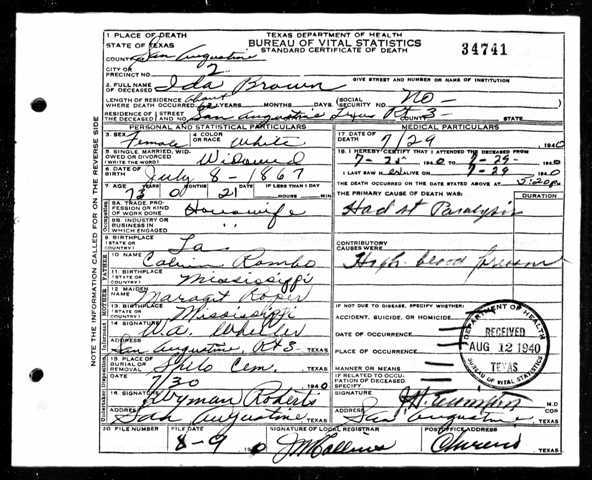 TEXAS DEPARTMENT OF HEALTH
BUREAU OF VITAL STATISTICS
STANDARD CERTIFICATE OF DEATH
34741
1 PLACE OF DEATH
STATE OF TEXAS
COUNTY San Augustine
CITY OR PRECINCT NO. 2
GIVE STREET AND NUMBER OR NAME OF INSTITUTION
2 FULL NAME OF DECEASED Ida Brown
LENGTH OF RESIDENCE WHERE DEATH OCCURRED YEARS MONTHS DAYS SOCIAL SECURITY NO. NO-
RESIDENCE OF THE DECEASED STREET San Augustine Texas Rt 3 COUNTY STATE
PERSONAL AND STATISTICAL PARTICULARS
3 SEX Female 4 COLOR OR RACE White
5 SINGLE, MARRIED, WIDOWED OR DIVORCED (WRITE THE WORD) Widowed
6 DATE OF BIRTH July 8-1867
7 AGE 73 0 21 IF LESS THAN 1 DAY HOURS MIN
8A. TRADE, PROFESSION OR KIND OF WORK DONE Housewife
8B. INDUSTRY OR BUSINESS IN WHICH ENGAGED " "
9 BIRTHPLACE (STATE OR COUNTRY) La.
10 NAME Calvin Rambo
11 BIRTHPLACE (STATE OR COUNTRY) Mississippi
12 MAIDEN NAME Margit Roper
13 BIRTHPLACE (STATE OR COUNTRY) Mississippi
14 SIGNATURE Wheeler
ADDRESS San Augustine Rt 3 TEXAS
15 PLACE OF BURIAL OR REMOVAL Shilo Cem. TEXAS
DATE 7/30 1940
16 SIGNATURE Wyman Roberts
ADDRESS San Augustine TEXAS
MEDICAL PARTICULARS
17 DATE OF DEATH 7/29 1940
18 I HEREBY CERTIFY THAT I ATTENDED THE DECEASED FROM
7-25 1940 TO 7-29- 1940
I LAST SAW H er ALIVE ON 7-29 1940
THE DEATH OCCURRED ON THE DATE STATED ABOVE AT 5:20 P M
THE PRIMARY CAUSE OF DEATH WAS: DURATION
Had st Paralysis
CONTRIBUTORY CAUSES WERE
High blood pressure
IF NOT DUE TO DISEASE, SPECIFY WHETHER:
ACCIDENT, SUICIDE, OR HOMICIDE
DATE OF OCCURRENCE
PLACE OF OCCURRENCE
IF RELATED TO OCCUPATION OF DECEASED SPECIFY
SIGNATURE M.D.
ADDRESS San Augustine TEXAS
DEPARTMENT OF HEALTH
RECEIVED
AUG 12 1940
TEXAS
BUREAU OF VITAL STATISTICS
20 FILE NUMBER FILE DATE 8-9 SIGNATURE OF LOCAL REGISTRAR POSTOFFICE ADDRESS
NOTE THE INFORMATION CALLED FOR ON THE REVERSE SIDE
FATHER
MOTHER